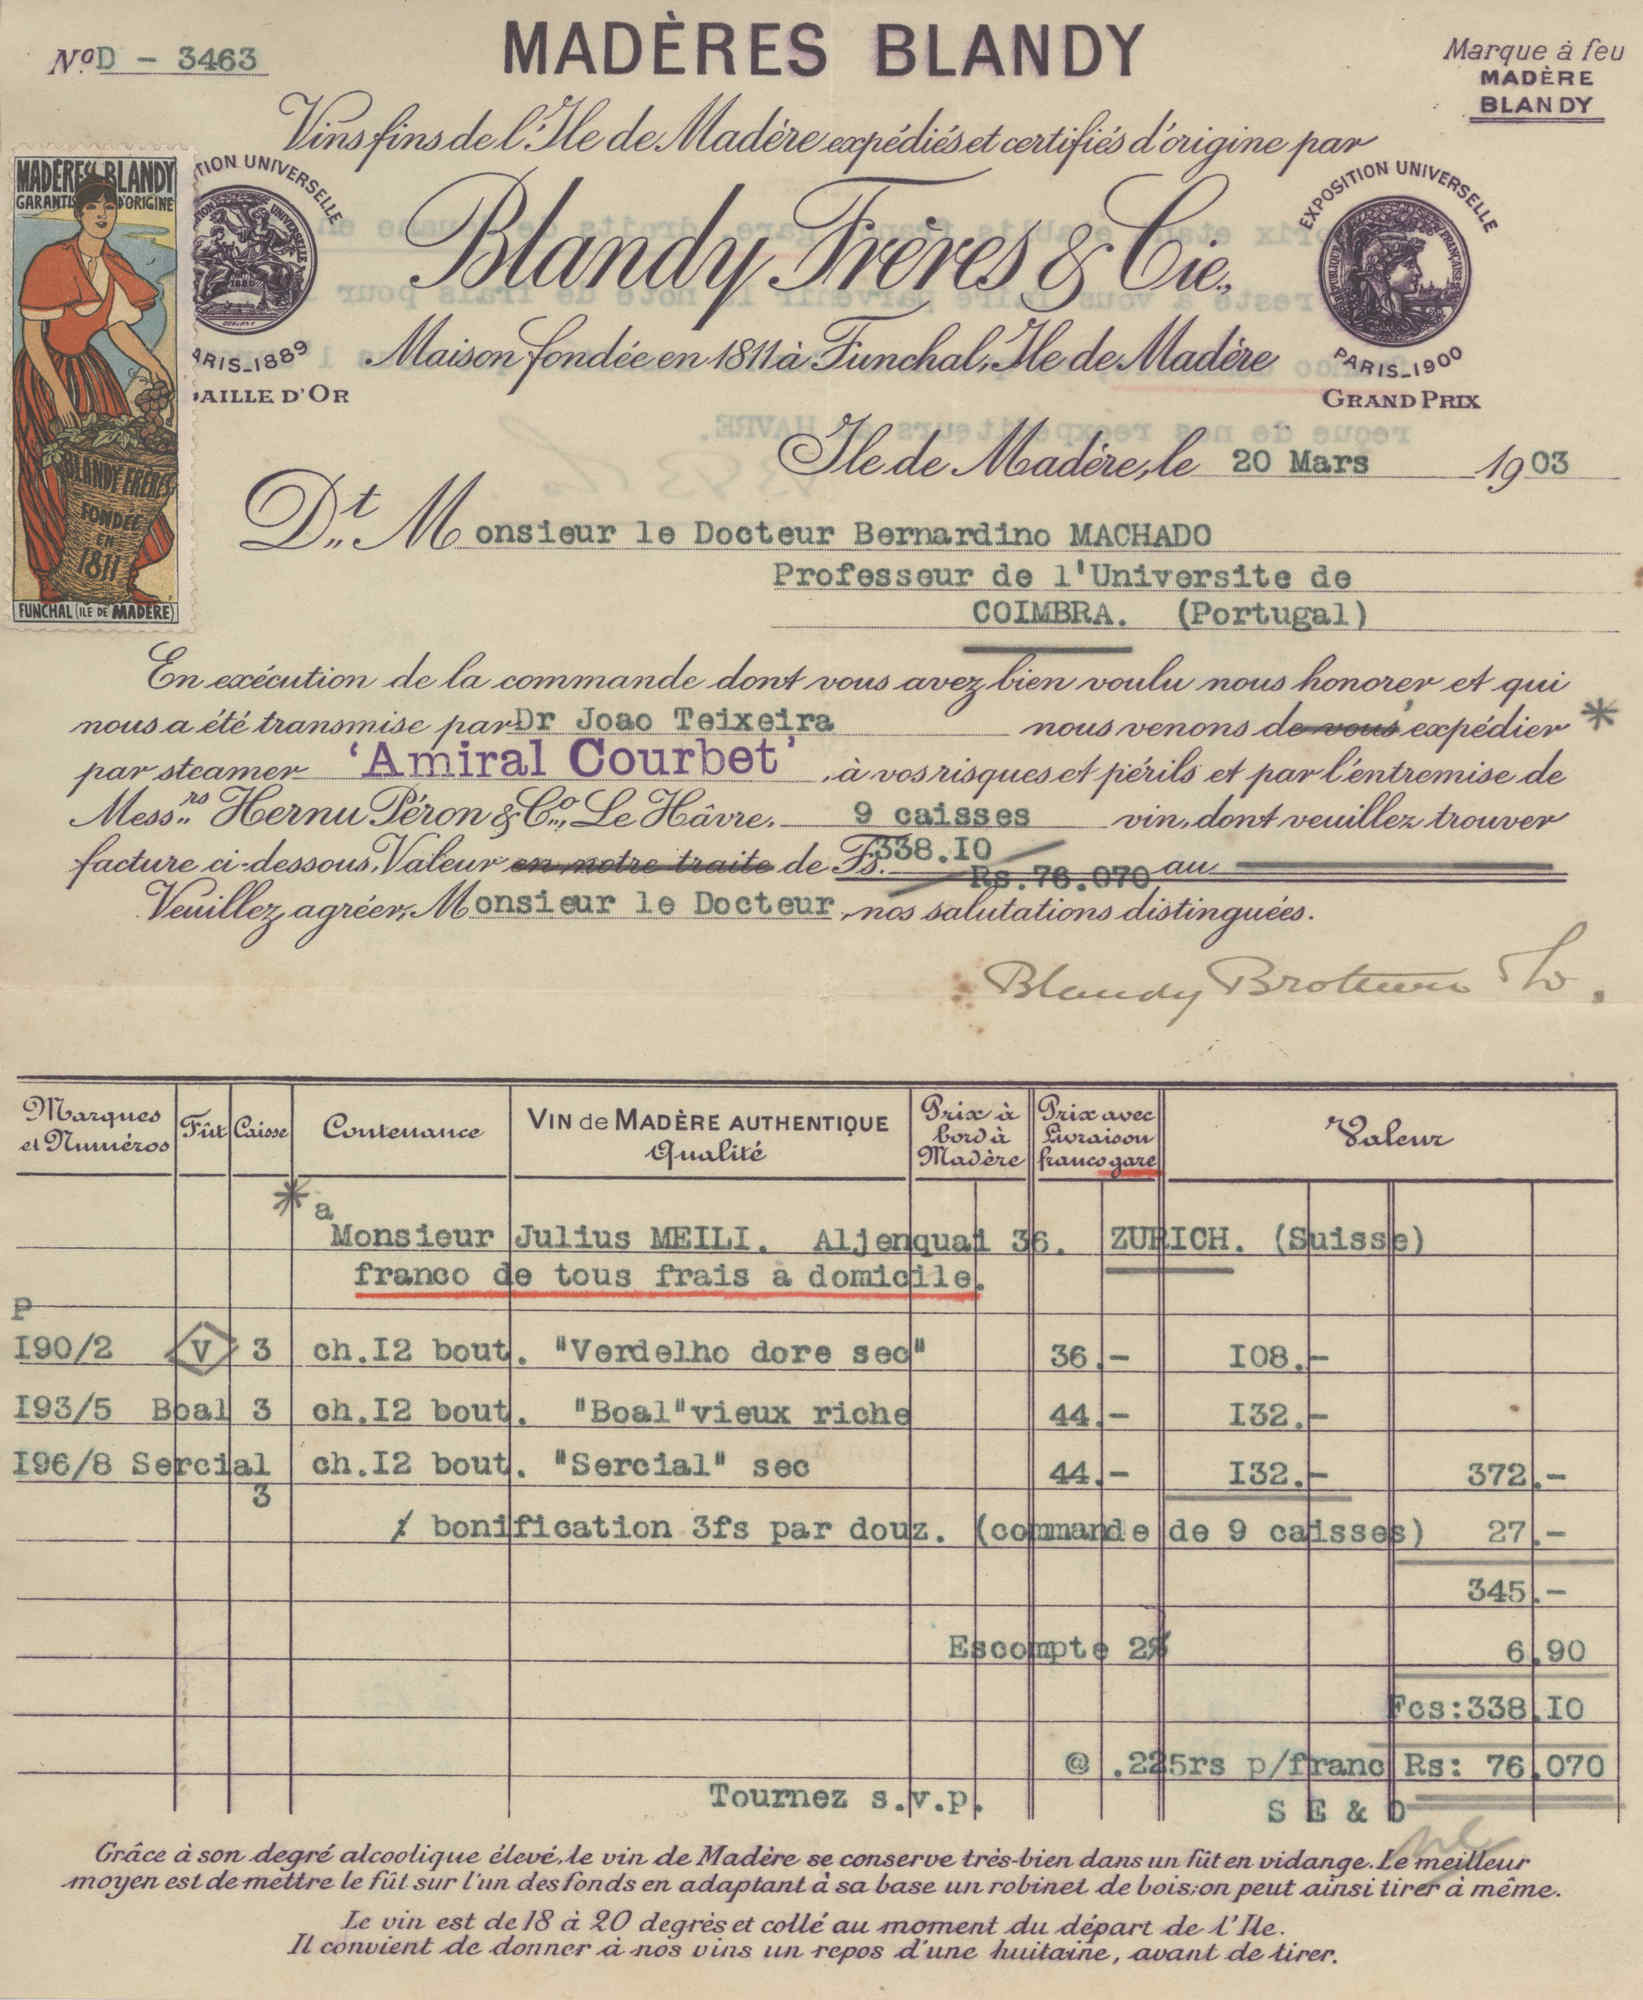 NoD - 3463
MADÈRES BLANDY
Marque à feu
MADÈRE
BLANDY
Vins fins de l'Ile de Madère expédiés et certifiés d'origine par
Blandy Frères & Cie.,
Maison fondée en 1811 à Funchal, Ile de Madère
MADÈRES BLANDY
GARANTIS D'ORIGINE
BLANDY FRÈRES
FONDÉE
EN
1811
FUNCHAL (ILE DE MADÈRE)
UNIVERSELLE
ARIS_1889
AILLE D'OR
EXPOSITION UNIVERSELLE
PARIS_1900
GRAND PRIX
Ile de Madère, le 20 Mars 1903
Dt. Monsieur le Docteur Bernardino MACHADO
Professeur de l'Universite de
COIMBRA. (Portugal)
En exécution de la commande dont vous avez bien voulu nous honorer et qui
nous a été transmise par Dr Joao Teixeira nous venons de vous expédier *
par steamer 'Amiral Courbet' , à vos risques et périls et par l'entremise de
Messrs. Hernu Péron & Co., Le Hâvre, 9 caisses vin, dont veuillez trouver
facture ci-dessous, Valeur en notre traite de Fs. 338.I0
Rs.76.070 au
Veuillez agréer, Monsieur le Docteur, nos salutations distinguées.
Blandy Brothers & Co.
Marques et Numéros Fût Caisse Contenance VIN de MADÈRE AUTHENTIQUE Qualité Prix à bord à Madère Prix avec Livraison franco gare Valeur
* a
Monsieur Julius MEILI. Aljenquai 36. ZURICH. (Suisse)
franco de tous frais à domicile.
P
I90/2 V 3 ch.I2 bout. "Verdelho dore sec" 36.- I08.-
I93/5 Boal 3 ch.I2 bout. "Boal"vieux riche 44.- I32.-
I96/8 Sercial 3 ch.I2 bout. "Sercial" sec 44.- I32.- 372.-
bonification 3fs par douz. (commande de 9 caisses) 27.-
345.-
Escompte 2% 6.90
Fcs:338.I0
@ .225rs p/franc Rs: 76.070
Tournez s.v.p. S E & O
Grâce à son degré alcoolique élevé, le vin de Madère se conserve très-bien dans un fût en vidange. Le meilleur
moyen est de mettre le fût sur l'un des fonds en adaptant à sa base un robinet de bois; on peut ainsi tirer à même.
Le vin est de 18 à 20 degrès et collé au moment du départ de l'Ile.
Il convient de donner à nos vins un repos d'une huitaine, avant de tirer.